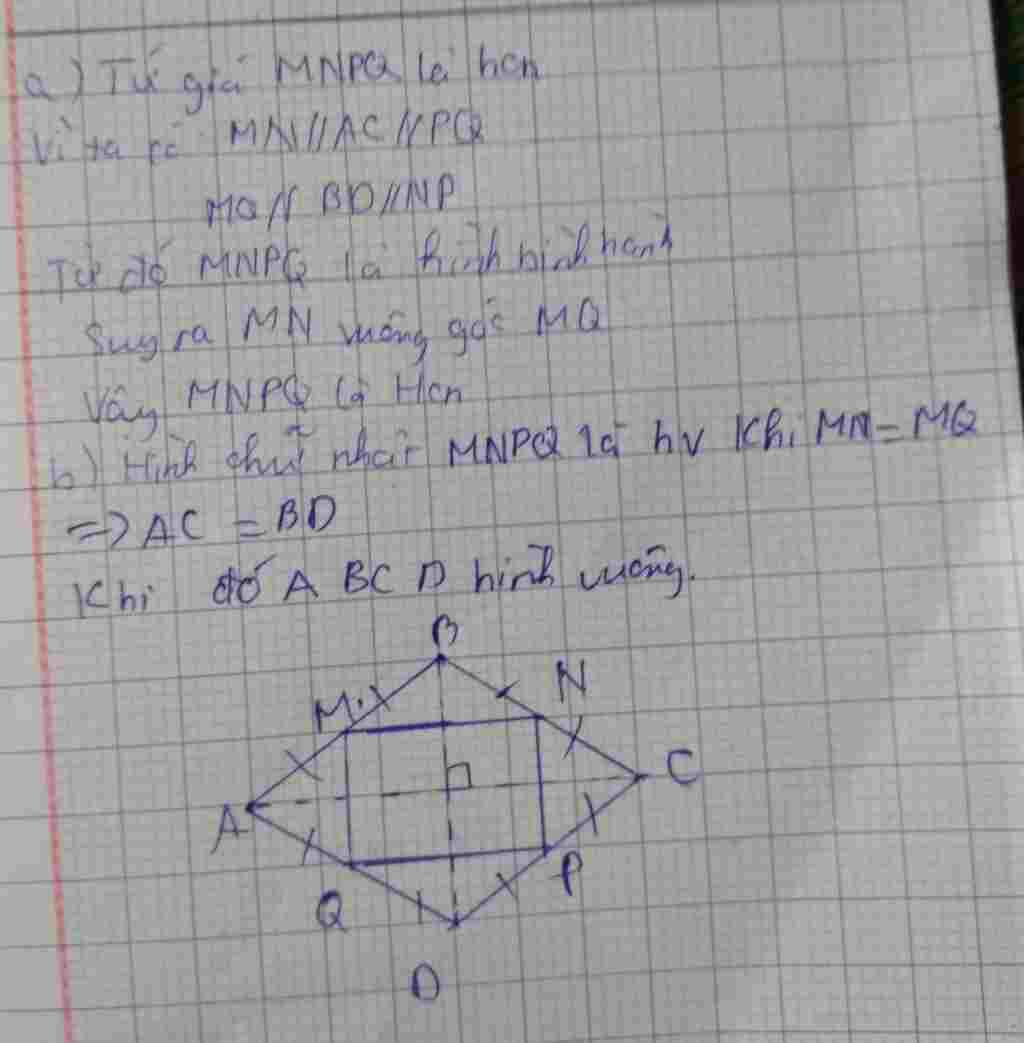 a) Tứ giá MNPQ là hcn
Vì ta có MN//AC//PQ
MQ// BD//NP
Từ đó MNPQ là hình bình hành
Suy ra MN vuông góc MQ
Vây MNPQ là Hcn
b) Hình chữ nhật MNPQ là hv Khi MN=MQ
=> AC = BD
Khi đó A BC D hình vuông.
B
M
N
A
C
Q
P
D